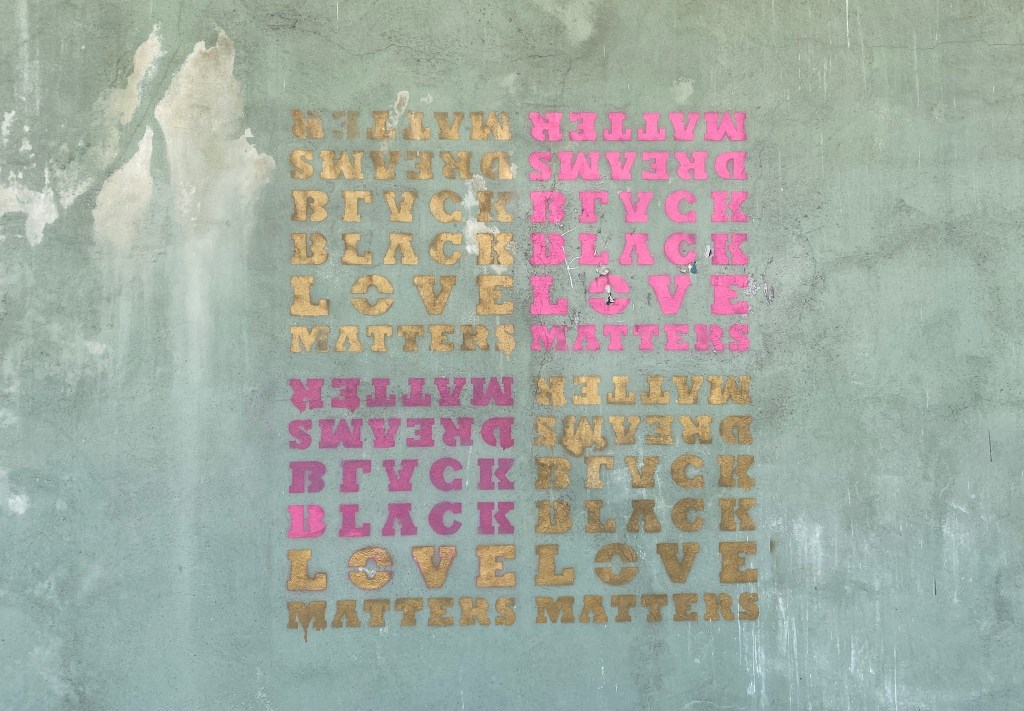 MATTER
DREAMS
BLACK
BLACK
LOVE
MATTERS
MATTER
DREAMS
BLACK
BLACK
LOVE
MATTERS
MATTER
DREAMS
BLACK
BLACK
LOVE
MATTERS
MATTER
DREAMS
BLACK
BLACK
LOVE
MATTERS